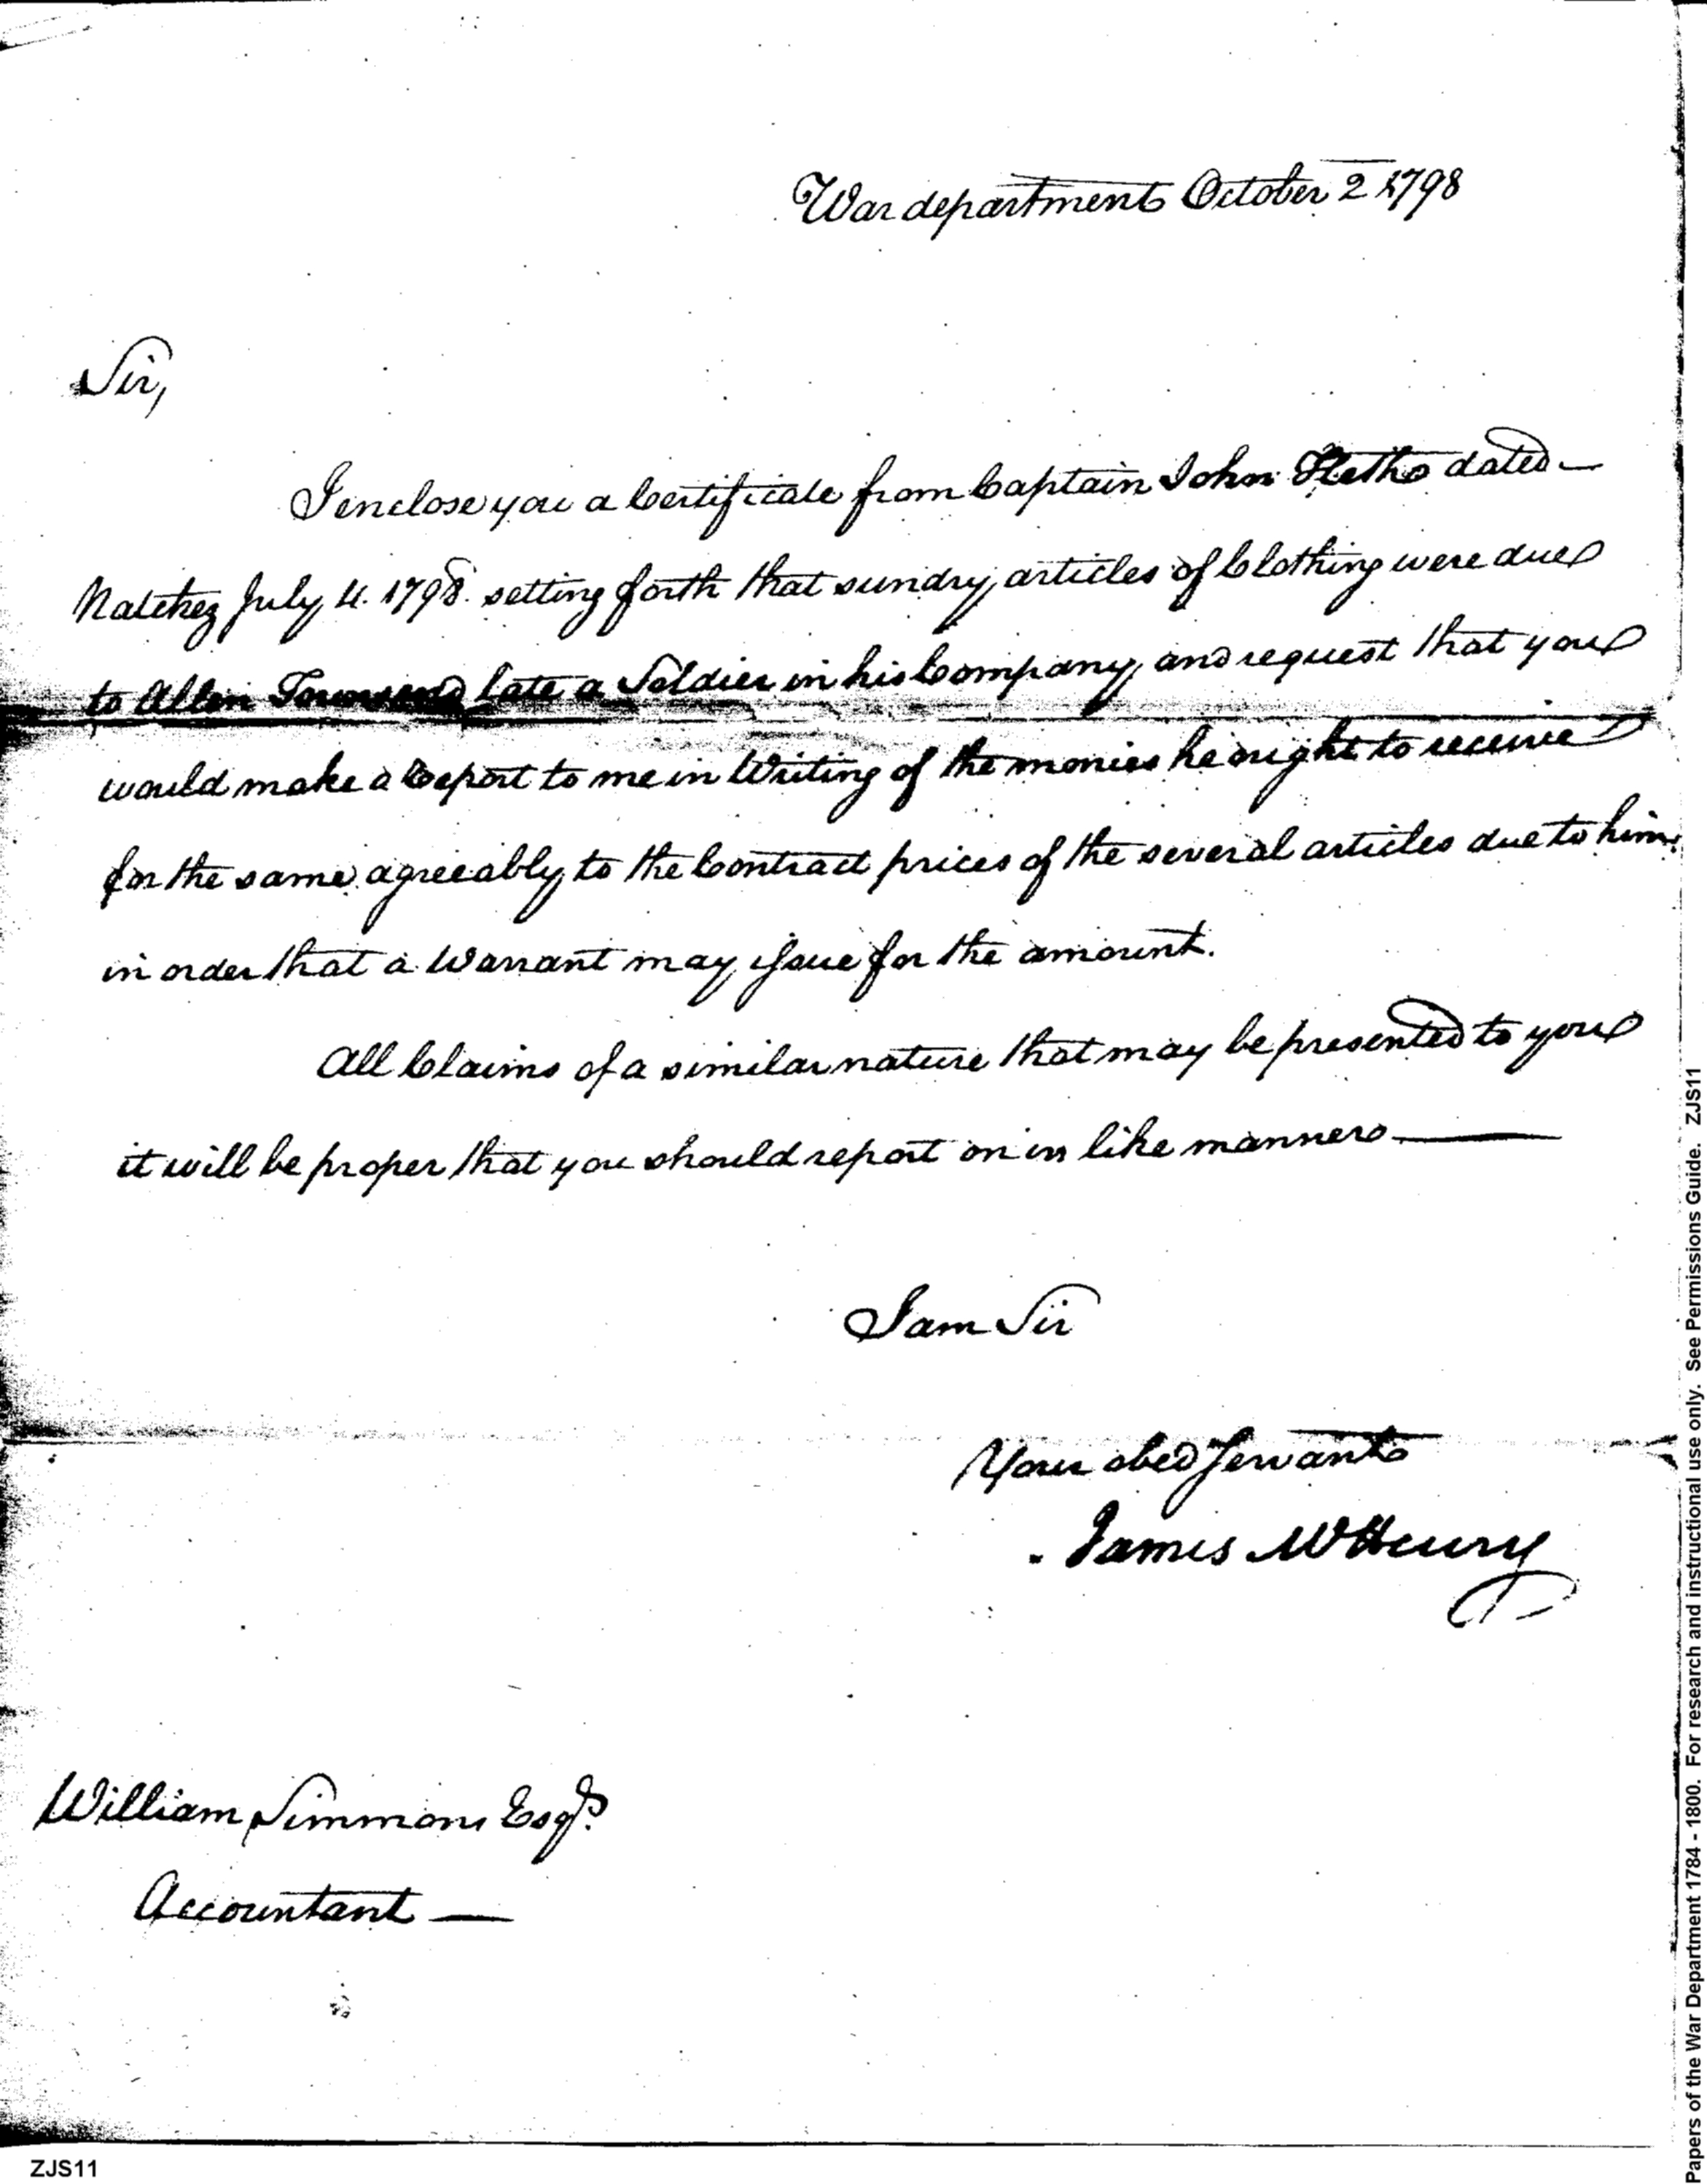 War department October 2 1798
Sir,
I enclose you a Certificate from Captain John dated
Natchez July 4. 1798. setting forth that sundry articles of Clothing were due
to Allen Townsend late a Soldier in his Company, and request that you
would make a Report to me in Writing of the monies he ought to receive
for the same agreeably to the Contract prices of the several articles due to him
in order that a Warrant may issue for the amount.
All Claims of a similar nature that may be presented to you
it will be proper that you should report on in like manner
I am Sir
Your obed Servant
James McHenry
William Simmons Esqr.
Accountant
ZJS11
Papers of the War Department 1784 - 1800. For research and instructional use only. See Permissions Guide. ZJS11